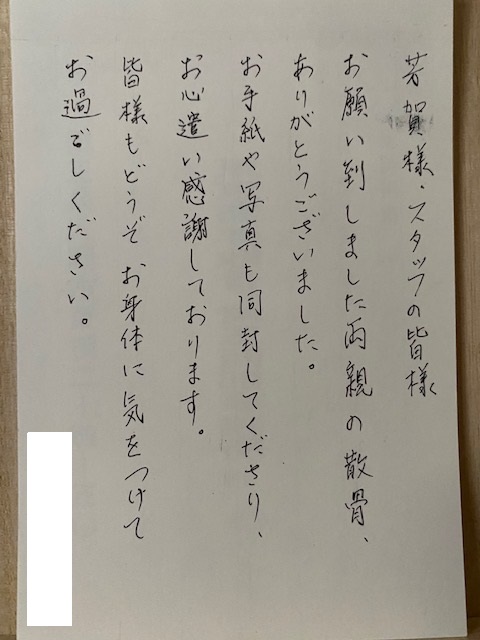 芳賀様、スタッフの皆様
お願い到しました両親の散骨、
ありがとうございました。
お手紙や写真も同封してくださり、
お心遣い感謝しております。
皆様もどうぞお身体に気をつけて
お過ごしください。